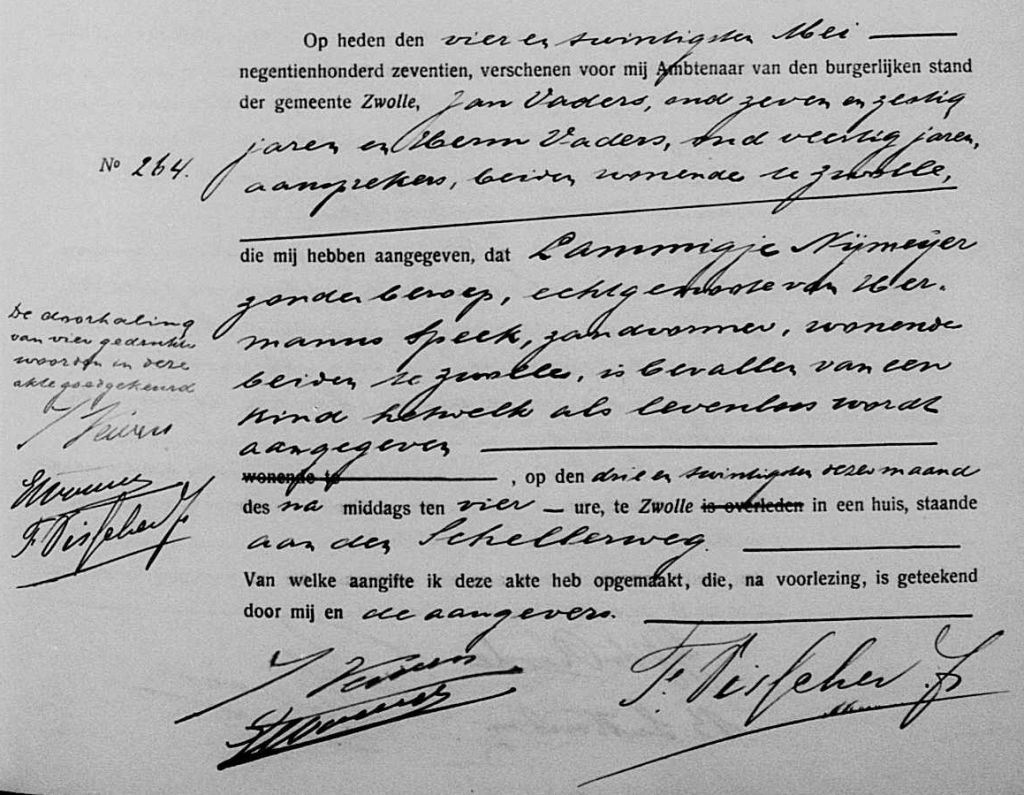 Op heden den vier en twintigsten Mei
negentienhonderd zeventien, verschenen voor mij Ambtenaar van den burgerlijken stand
der gemeente Zwolle, Jan Vaders, oud zeven en zestig
jaren en Herm Vaders, oud veertig jaren,
aansprekers, beiden wonende te Zwolle,
No 264.
die mij hebben aangegeven, dat Lammigje Nijmeijer
zonder beroep, echtgenoote van Her-
mannus Speek, zandvormer, wonende
beiden te Zwolle, is bevallen van een
kind hetwelk als levenloos wordt
aangegeven
wonende te , op den drie en twintigsten dezer maand
des na middags ten vier ure, te Zwolle is overleden in een huis, staande
aan den Schellerweg.
Van welke aangifte ik deze akte heb opgemaakt, die, na voorlezing, is geteekend
door mij en de aangevers.
De doorhaling
van vier gedrukte
woorden in deze
akte goedgekeurd
F. Visscher Jz
F. Visscher Jz